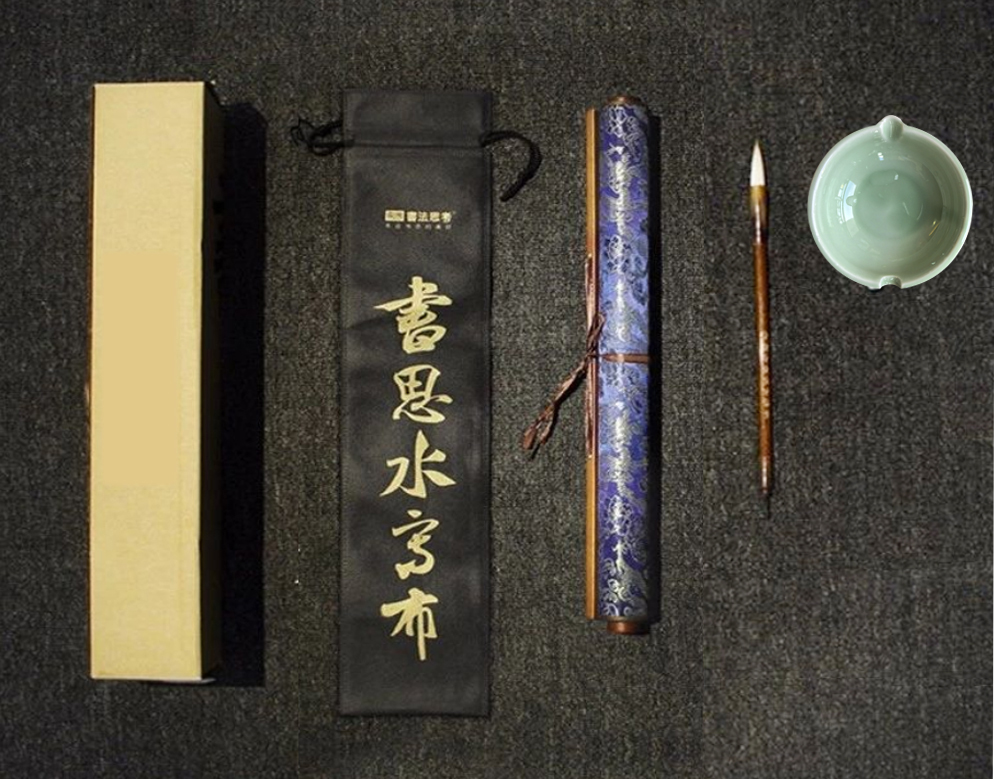 書法思考
書思水寫布